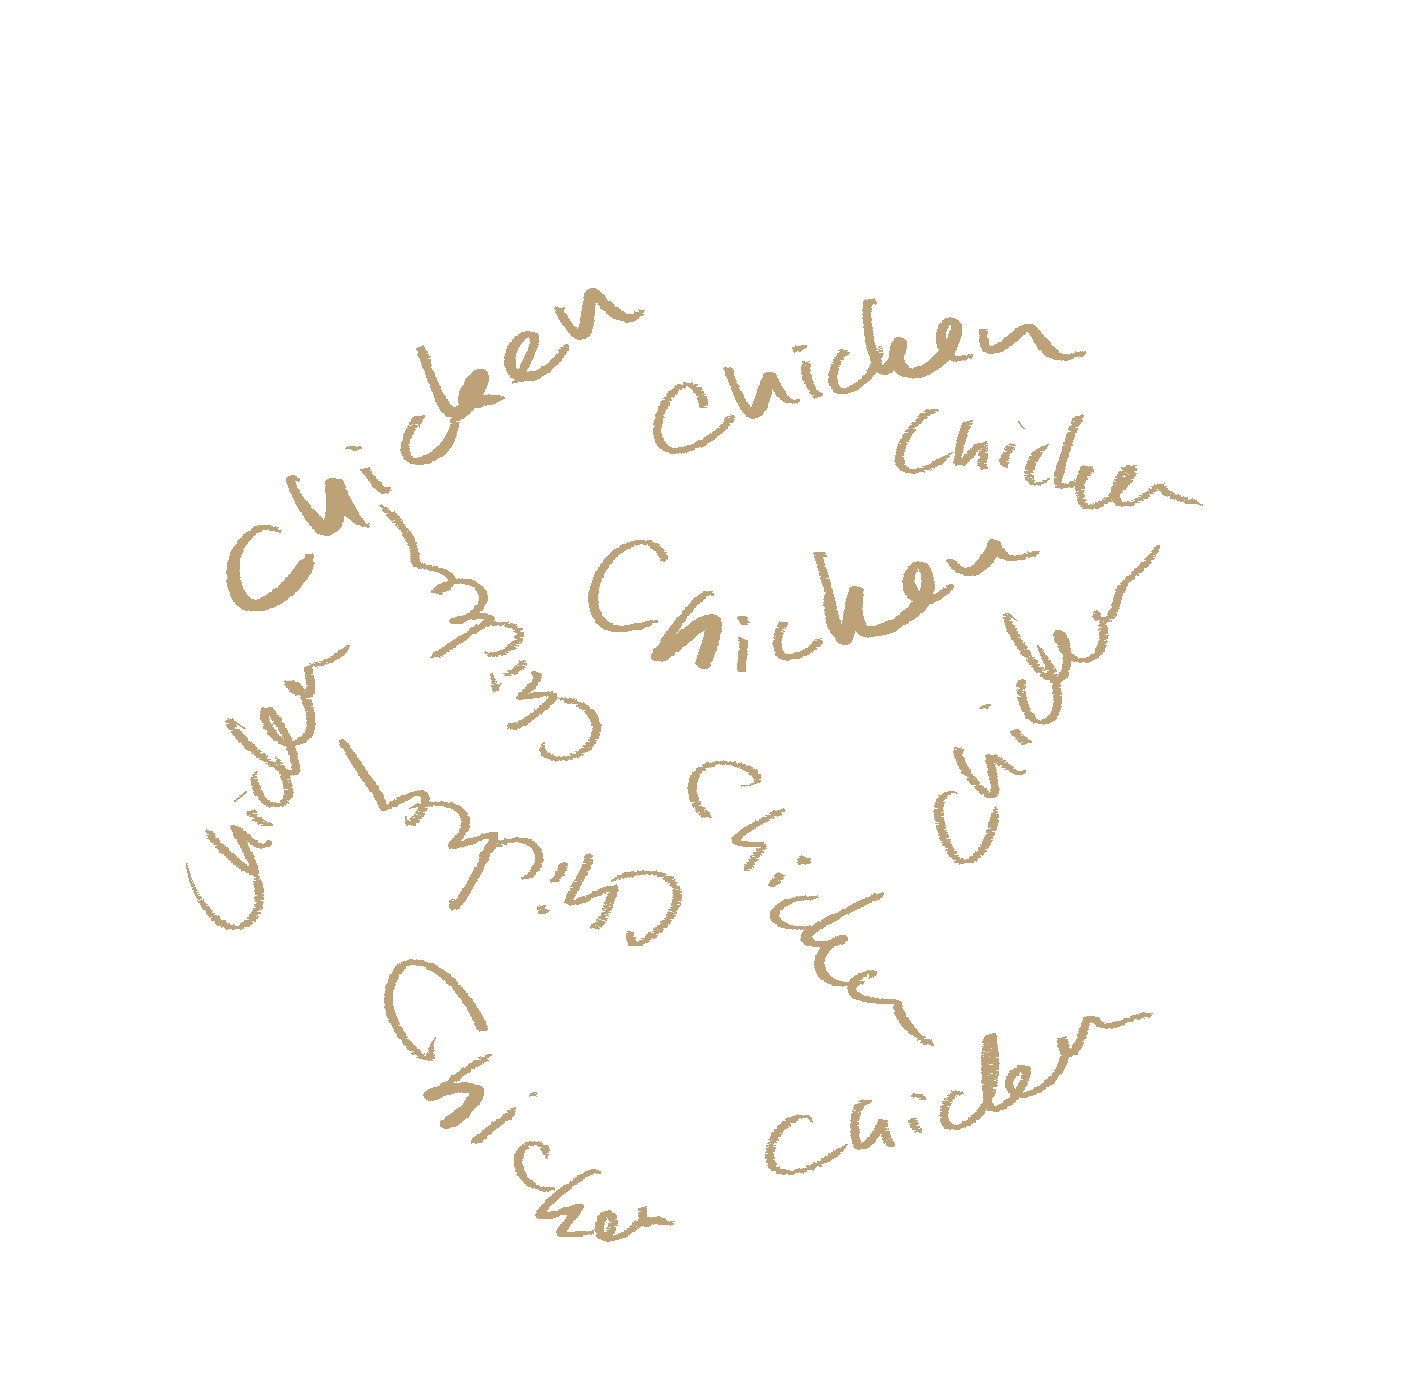 Chicken
Chicken
Chicken
Chicken
Chicken
Chicken
Chicken
Chicken
Chicken
Chicken
Chicken